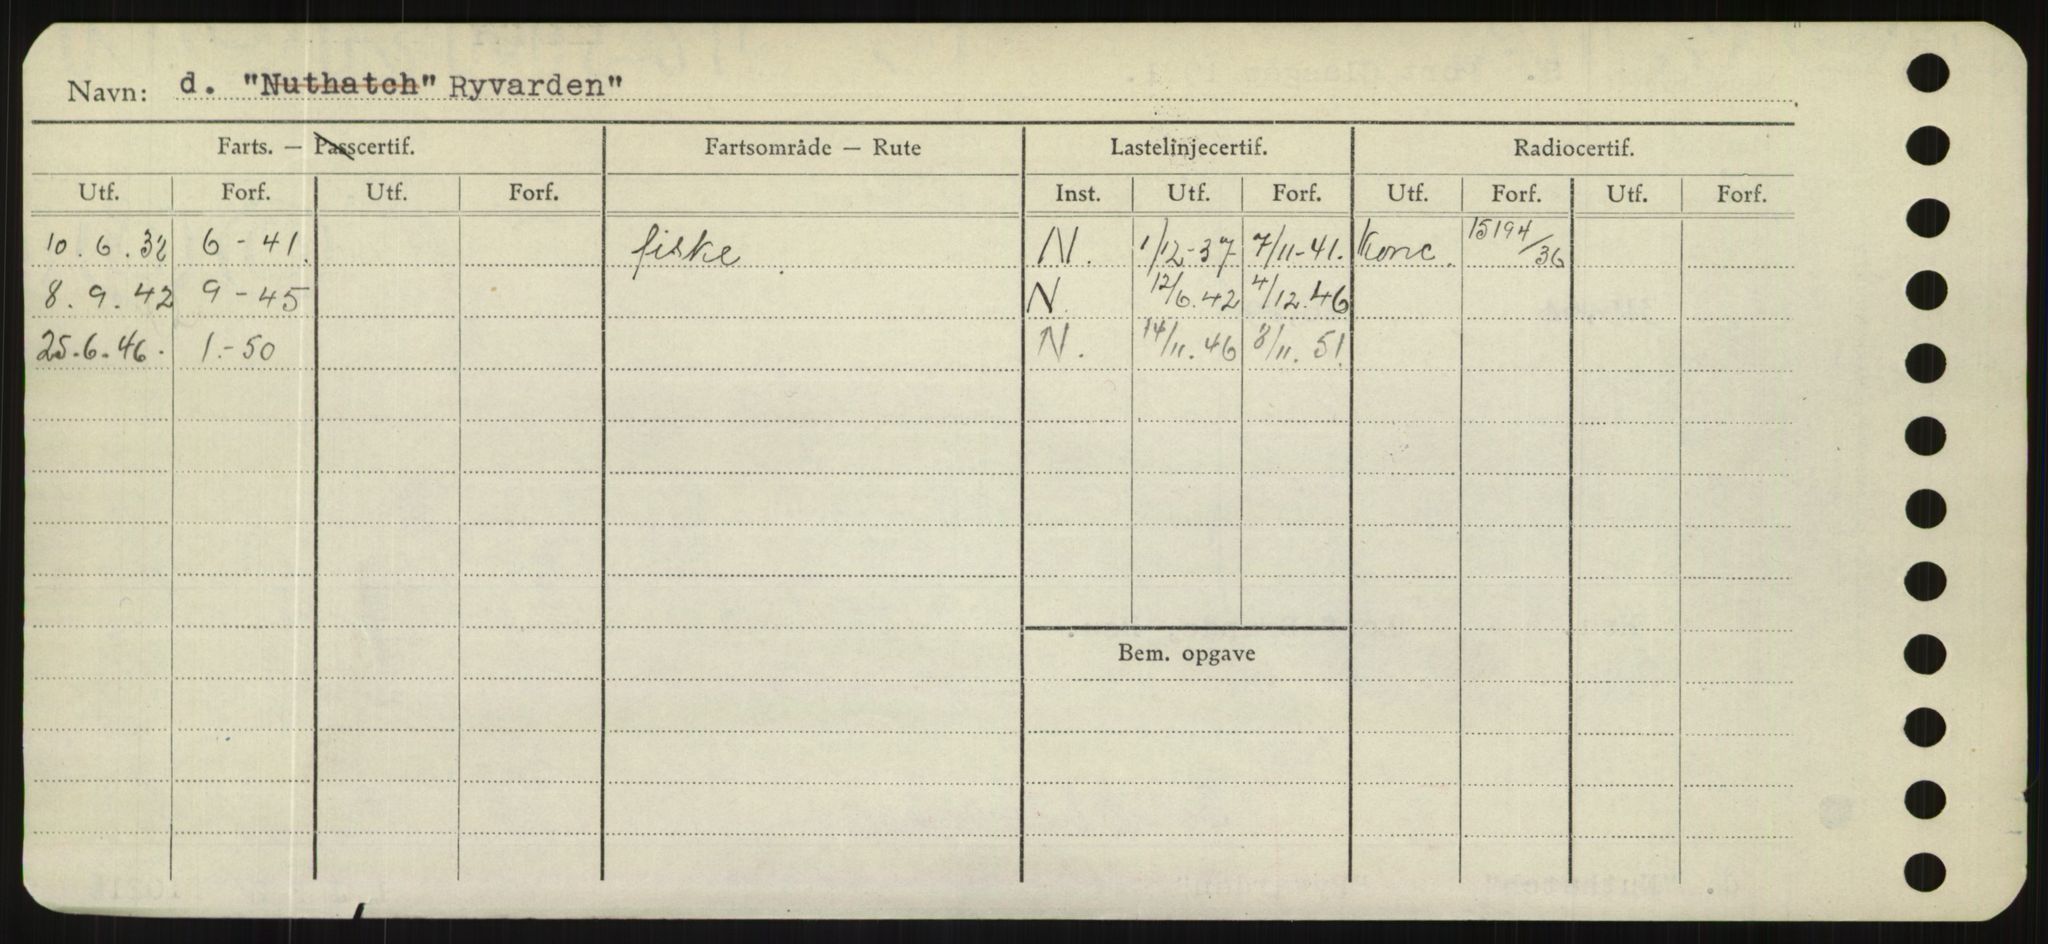 Navn: d. "Nuthatch" Ryvarden"
Farts. — Passcertif. Fartsområde — Rute Lastelinjecertif. Radiocertif.
Utf. Forf. Utf. Forf. Inst. Utf. Forf. Utf. Forf. Utf. Forf.
10.6.38 6-41. fiske N. 1/12-37 7/11-41. Konc. 15194/36
8.9.42 9-45 N. 12/6.42 4/12.46
25.6.46. 1.-50 N. 14/11.46 8/11.51.
Bem. opgave